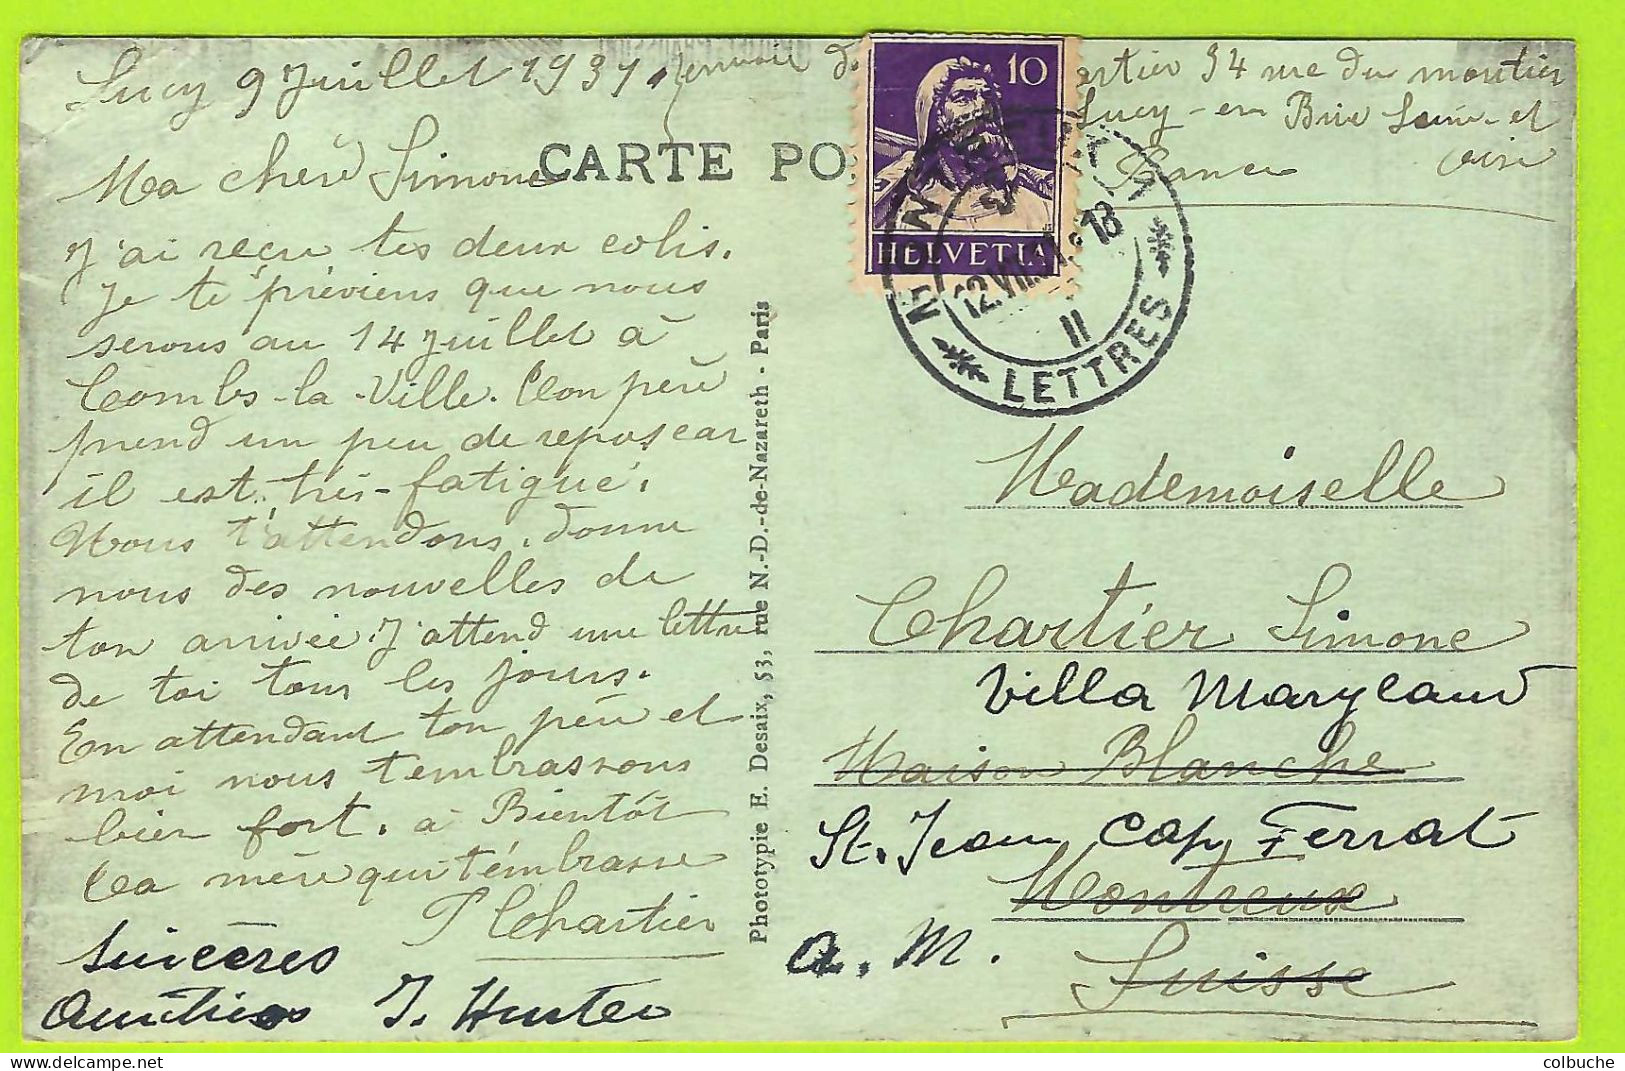 Sucy 9 Juillet 1931.
envoie d
artier 34 rue du moutier
Sucy-en Brie Seine-et
oise
France
CARTE PO
10
HELVETIA
MONTREUX 1
12.VII.31.18
II
LETTRES
Ma chère Simone
J'ai reçu tes deux colis.
Je te préviens que nous
serons au 14 Juillet à
Combs-la-Ville. Ton père
prend un peu de repos car
il est très-fatigué.
Nous t'attendons, donne
nous des nouvelles de
ton arrivée J'attend une lettre
de toi tous les jours.
En attendant ton père et
moi nous t'embrassons
bien fort. à Bientôt
Ta mère qui t'émbrasse
Chartier
Sincères
Amitiés J. Hunter
Phototypie E. Desaix, 53, rue N.-D.-de-Nazareth - Paris
Mademoiselle
Chartier Simone
Villa Maryland
Maison Blanche
St. Jean Cap Ferrat
Montreux
A. M.
Suisse
colbuche